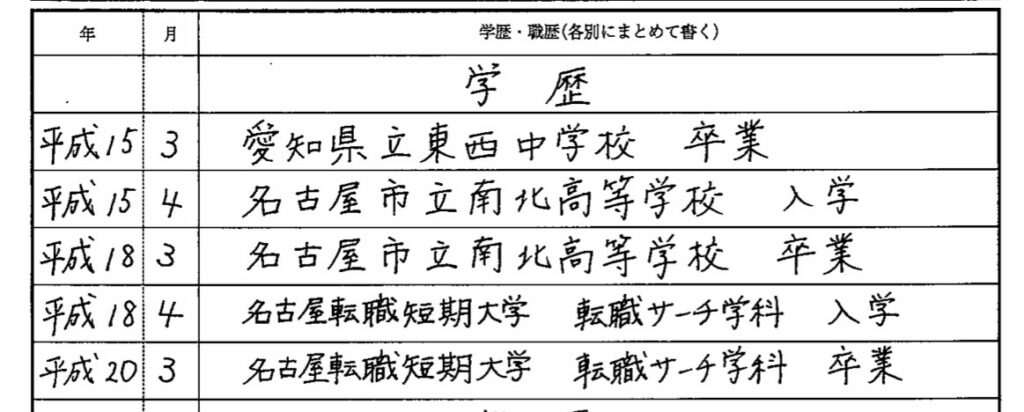 年 月 学歴・職歴(各別にまとめて書く)
学 歴
平成15 3 愛知県立東西中学校 卒業
平成15 4 名古屋市立南北高等学校 入学
平成18 3 名古屋市立南北高等学校 卒業
平成18 4 名古屋転職短期大学 転職サーチ学科 入学
平成20 3 名古屋転職短期大学 転職サーチ学科 卒業